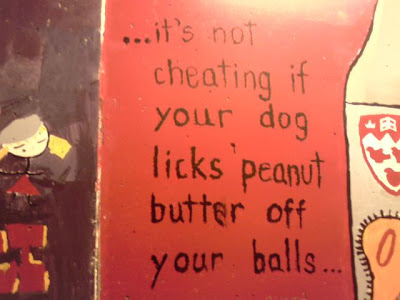 ...it's not
cheating if
your dog
licks 'peanut
butter off
your balls...